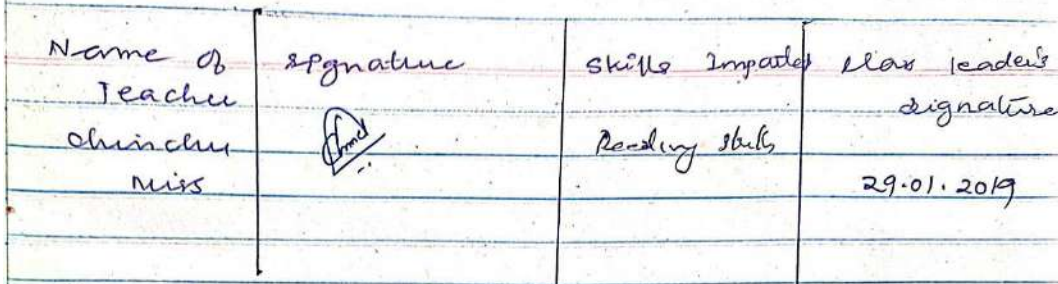 Name of Teacher
signature
Skills Imparted
Class leader's signature
chinchu Miss
Reading skills
29.01.2019